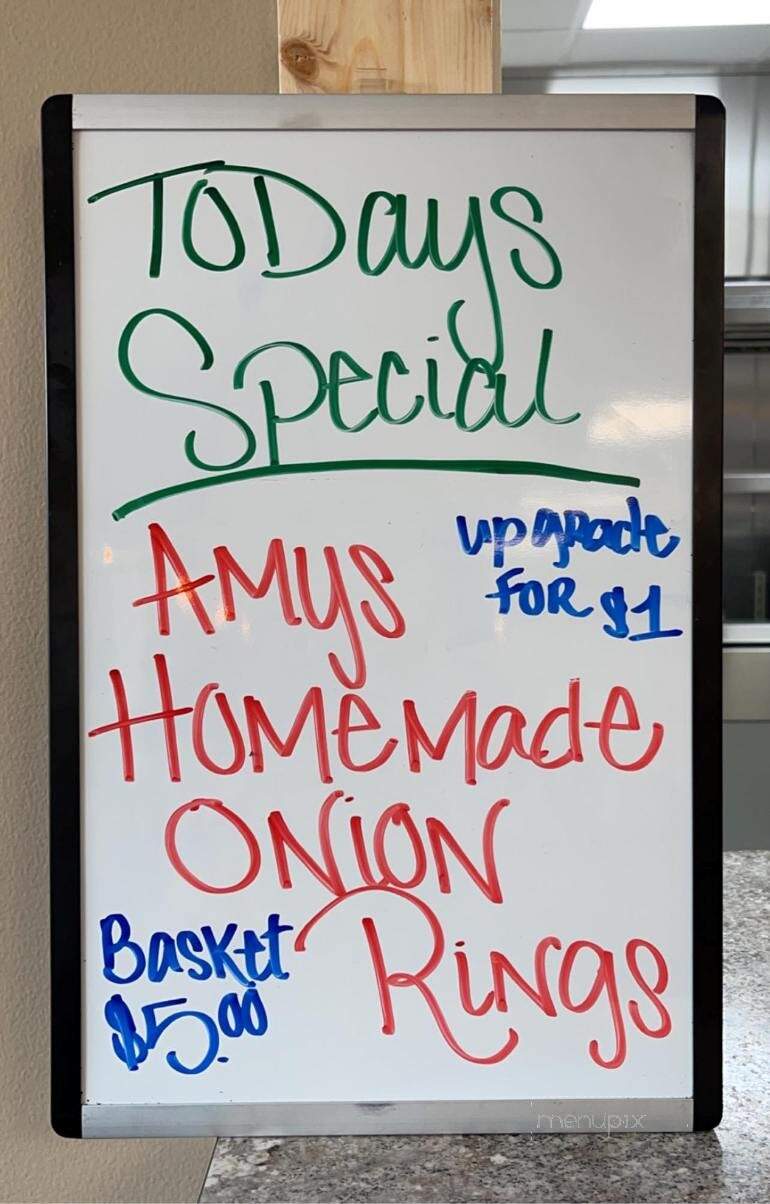 ToDays
Special
Amys
upgrade
FOR $1
Homemade
ONiON
Rings
Basket
$5.00
menupix